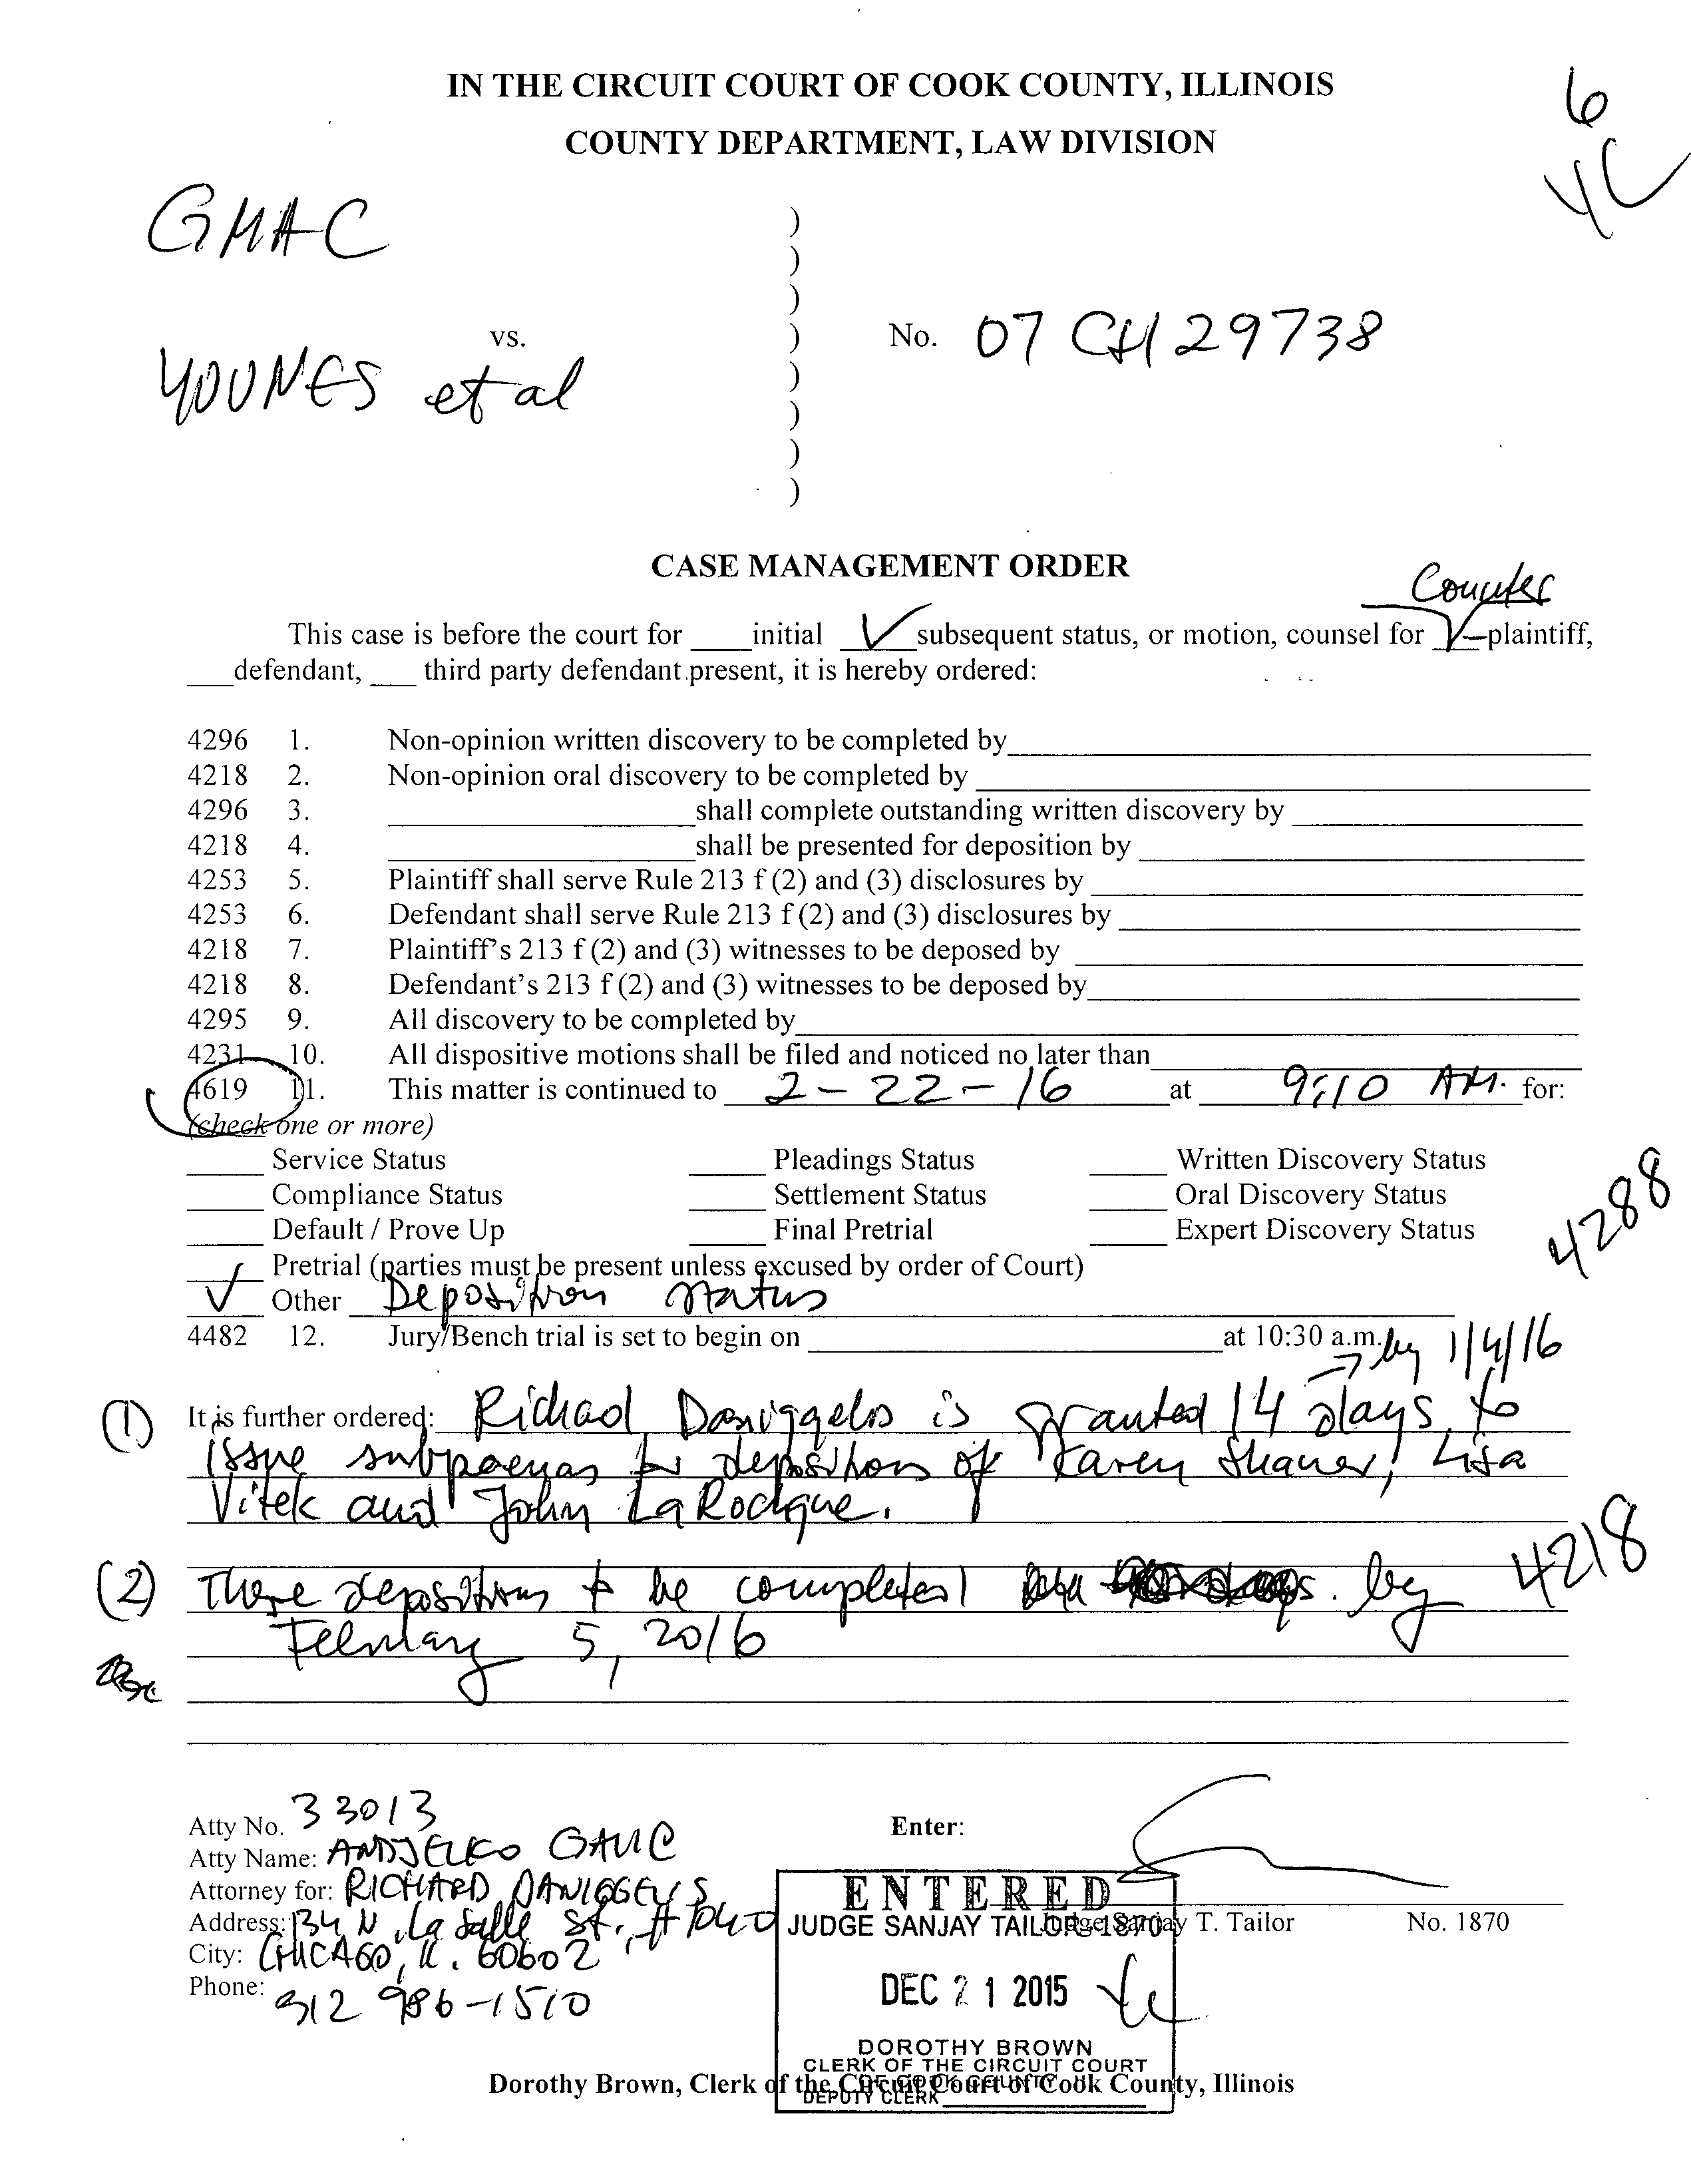 IN THE CIRCUIT COURT OF COOK COUNTY, ILLINOIS
COUNTY DEPARTMENT, LAW DIVISION
6
GMAC
)
)
)
vs. ) No. 07 CH 29738
YOUNES et al )
)
)
)
CASE MANAGEMENT ORDER
Counter
This case is before the court for ____initial __✓__subsequent status, or motion, counsel for _✓_plaintiff,
___defendant, ___ third party defendant present, it is hereby ordered:
4296 1. Non-opinion written discovery to be completed by
4218 2. Non-opinion oral discovery to be completed by
4296 3. ____shall complete outstanding written discovery by
4218 4. ____shall be presented for deposition by
4253 5. Plaintiff shall serve Rule 213 f (2) and (3) disclosures by
4253 6. Defendant shall serve Rule 213 f (2) and (3) disclosures by
4218 7. Plaintiff's 213 f (2) and (3) witnesses to be deposed by
4218 8. Defendant's 213 f (2) and (3) witnesses to be deposed by
4295 9. All discovery to be completed by
4231 10. All dispositive motions shall be filed and noticed no later than
4619 11. This matter is continued to 2-22-16 at 9:10 AM. for:
(check one or more)
____ Service Status ____ Pleadings Status ____ Written Discovery Status
____ Compliance Status ____ Settlement Status ____ Oral Discovery Status
____ Default / Prove Up ____ Final Pretrial ____ Expert Discovery Status
4288
____ Pretrial (parties must be present unless excused by order of Court)
✓ Other Deposition status
4482 12. Jury/Bench trial is set to begin on ____at 10:30 a.m.
→ by 1/4/16
(1) It is further ordered: Richard Daniggelis is granted 14 days to
issue subpoenas for depositions of Karen Shaner, Lisa
Vitek and John LaRocque.
(2) These depositions to be completed by
4218
February 5, 2016
Atty No. 33013
Atty Name: ANDJELKO GALIC
Attorney for: RICHARD DANIGGELIS
Address: 134 N. La Salle St., #1040
City: CHICAGO, IL. 60602
Phone: 312 986-1510
Enter:
Judge Sanjay T. Tailor No. 1870
ENTERED
JUDGE SANJAY TAILOR-1870
DEC 21 2015
DOROTHY BROWN
CLERK OF THE CIRCUIT COURT
OF COOK COUNTY, IL
DEPUTY CLERK
Dorothy Brown, Clerk of the Circuit Court of Cook County, Illinois